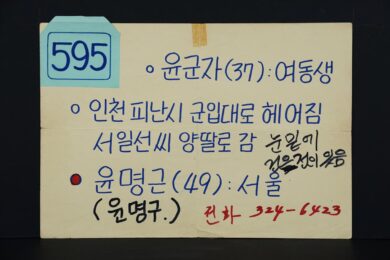 595
윤군자(37):여동생
인천 피난시 군입대로 헤어짐
서일선씨 양딸로 감 눈밑에
검은점이 있음
윤명근(49):서울
(윤명구.) 전화 324-6423